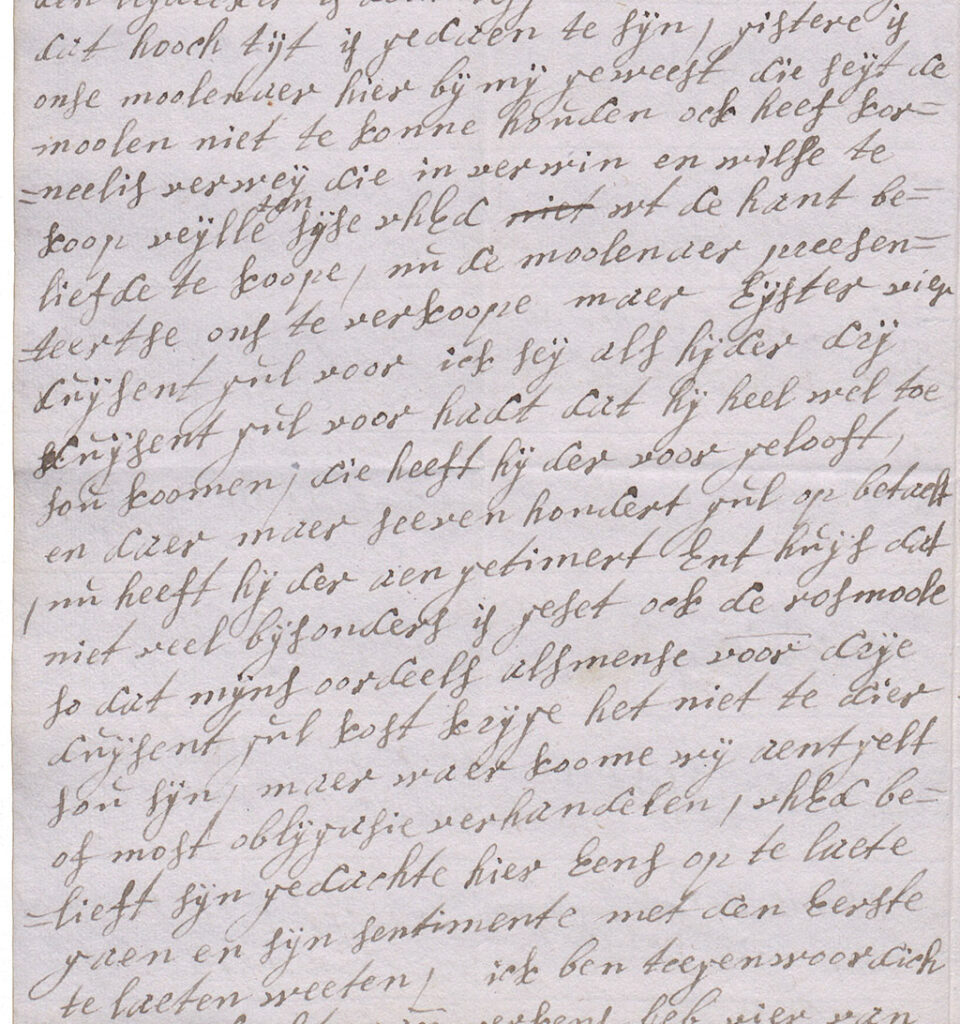 dat hooch tijt is gedaen te sijn, gistere is
onse moolenaer hier bij mij geweest die seijt de
moolen niet te konne houden ock heef kor=
=neelis verweij die in verwin en wilse te
koop veijlle son sijse vhEd niet wt de hant be=
liefde te koope, nu de moolenaer preesen=
=teertse ons te verkoope maer Eijster vier
duijsent gul voor ick seij als hijder drij
duijsent gul voor hadt dat hij heel wel toe
sou koomen, die heeft hij der voor gelooft,
en daer maer seeven hondert gul op betaelt
, nu heeft hij der aen getimert Ent huijs dat
niet veel bijsonders is geset ock de rosmoole
so dat mijns oordeels alsmense voor drije
duijsent gul kost krijge het niet te dier
sou sijn, maer waer koome wij aent gelt
of most oblijgasie verhandelen, vhEd be=
=lieft sijn gedachte hier Eens op te laete
gaen en sijn sentimente met den Eerste
te laeten weeten, ick ben teegenwoordich
heb vier van